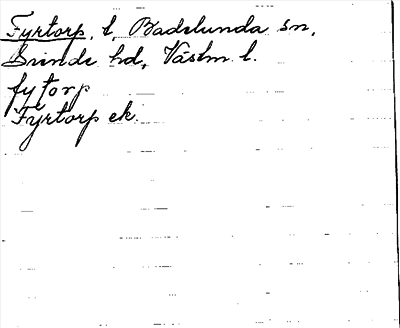 Fyrtorp, l, Badelunda sn,
Siende hd, Västm l.
fytorp
Fyrtorp ek.